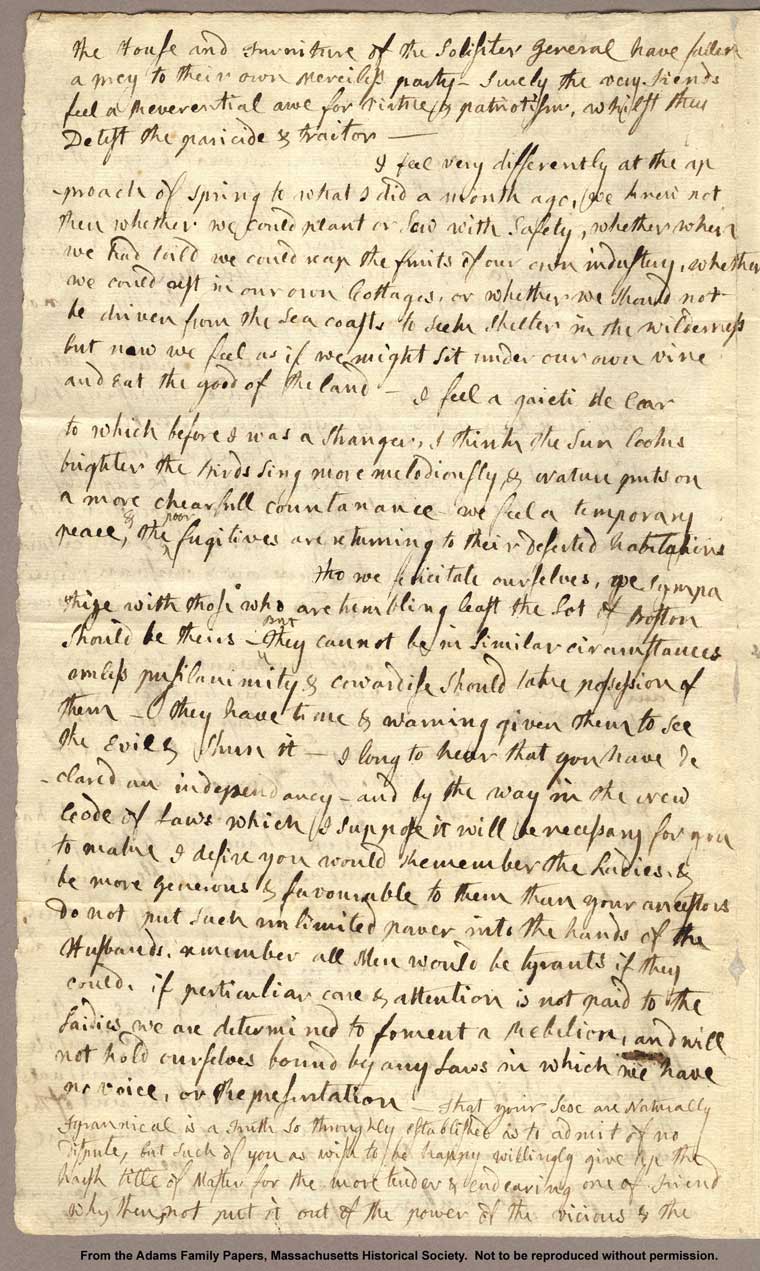 the House and Furniture of the Solisiter General have fallen
a prey to their own merciless party - Surely the very Fiends
feel a Reverential awe for virtue & patriotism, whilst they
Detest the paricide & traitor —
I feel very differently at the ap
-proach of spring to what I did a month ago, we knew not
then whether we could plant or sow with safety, whether when
we had toild we could reap the fruits of our own industery, whether
we could rest in our own Cottages, or whether we should not
be driven from the Sea coasts to seek shelter in the wilderness
but now we feel as if we might sit under our own vine
and eat the good of the land - I feel a gaieti de Coar
to which before I was a stranger, I think the Sun looks
brighter the Birds sing more melodiously & Nature puts on
a more chearfull countanance - we feel a temporary
peace, & the poor fugitives are returning to their deserted habitations
Tho we felicitate ourselves, we sympa
thize with those who are trembling least the Lot of Boston
should be theirs - But they cannot be in similar circumstances
unless pusilanimity & cowardise should take possession of
them - They have time & warning given them to see
the Evil & shun it - I long to hear that you have de
-clared an independancy - and by the way in the new
Code of Laws which I suppose it will be necessary for you
to make I desire you would Remember the Ladies, &
be more generous & favourable to them than your ancestors
Do not put such unlimited power into the hands of the
Husbands. remember all Men would be tyrants if they
could. if perticuliar care & attention is not paid to the
Laidies we are determined to foment a Rebelion, and will
not hold ourselves bound by any Laws in which we have
no voice, or Representation - That your Sex are Naturally
Tyrannical is a Truth so throughly established as to admit of no
Dispute, but such of you as wish to be happy willingly give up the
harsh title of Master for the more tender & endearing one of Friend
Why then, not put it out of the power of the vicious & the
From the Adams Family Papers, Massachusetts Historical Society. Not to be reproduced without permission.